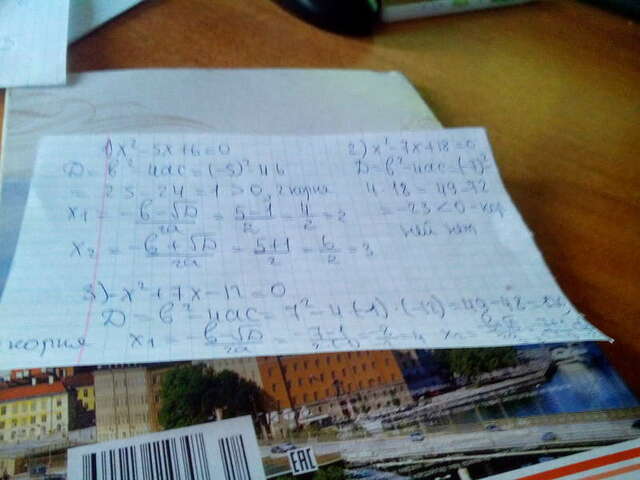 1) x² - 5x + 6 = 0
D = b² - 4ac = (-5)² - 4·6
= 25 - 24 = 1 > 0, 2 корня
x₁ = -b-√D/2a = 5-1/2 = 4/2 = 2
x₂ = -b+√D/2a = 5+1/2 = 6/2 = 3
2) x² - 7x + 18 = 0
D = b² - 4ac = (-7)²
4·18 = 49-72
= -23 < 0 - кор
ней нет
3) -x² + 7x - 12 = 0
D = b² - 4ac = 7² - 4·(-1)·(-12) = 49 - 48
корня x₁ = -b-√D/2a = = 4 x₂ =
EAC